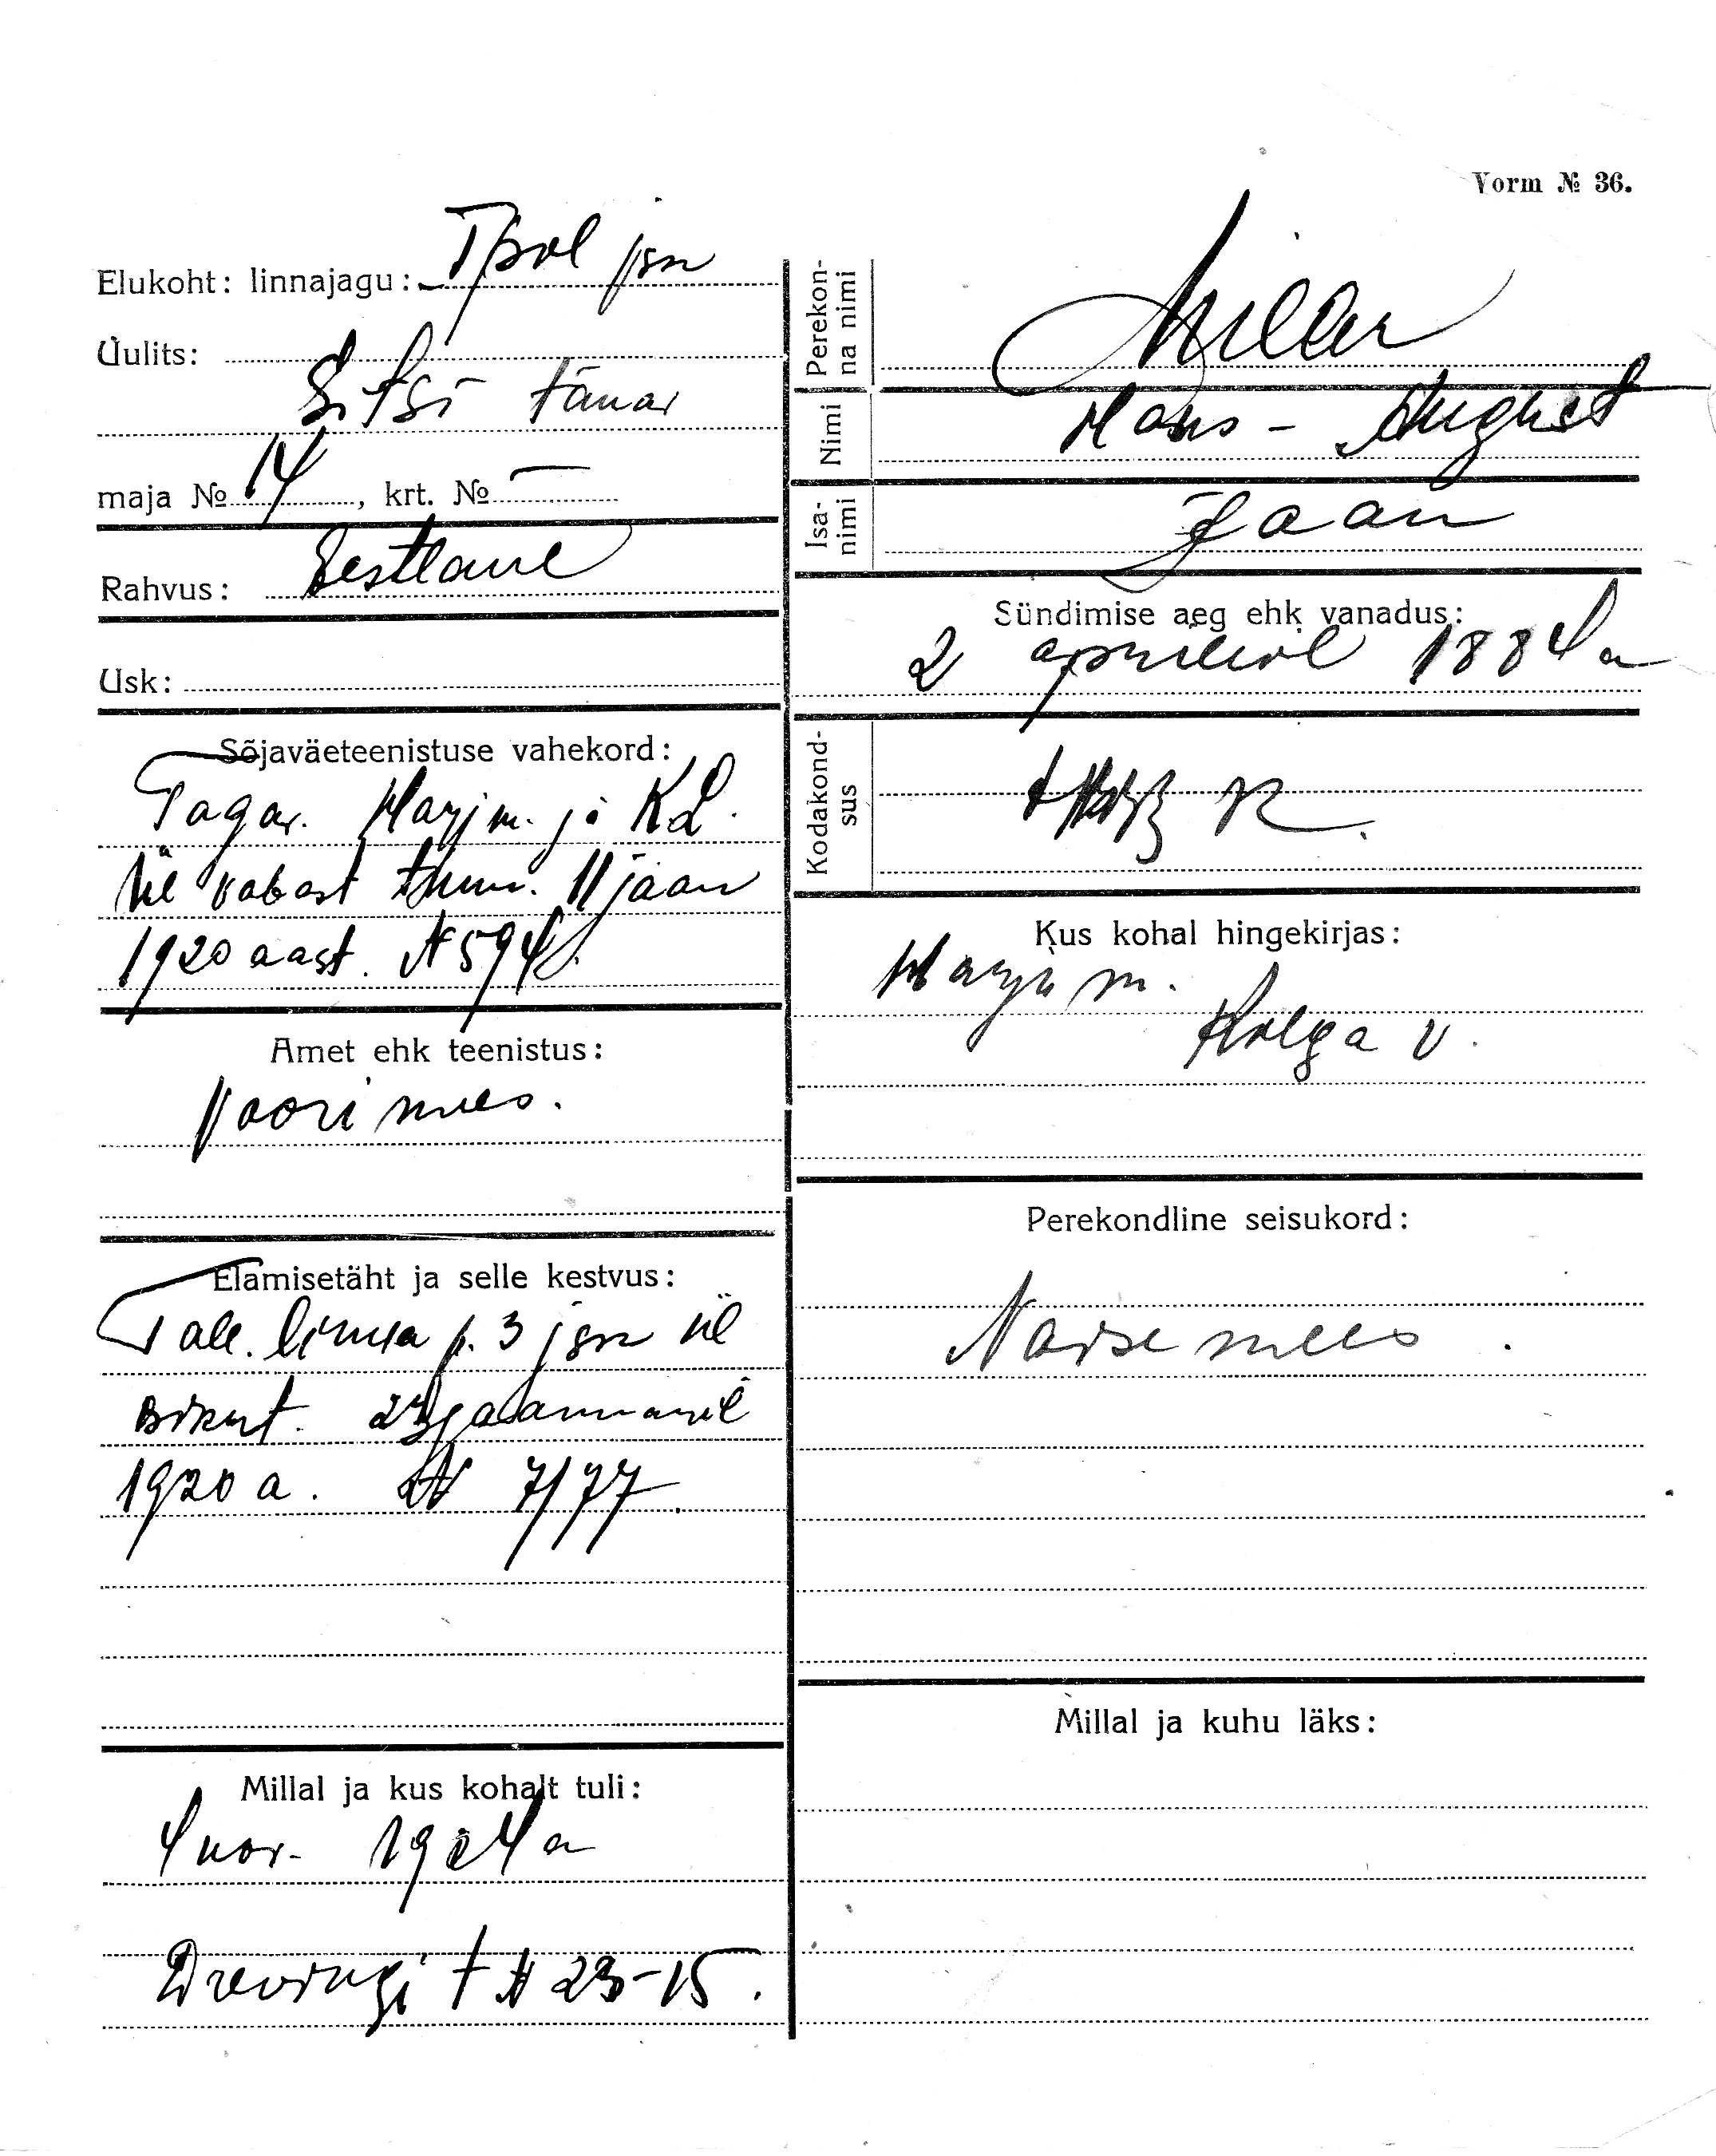 Vorm № 36.
Elukoht: linnajagu: I pol jsn
Uulits:
Sitsi tänav
maja № 14, krt. № —
Rahvus: Eestlane
Usk:
Sõjaväeteenistuse vahekord:
Tagav. Harjm. j. K Ü.
ül vabast tunn. 11 jaan
1920 aast. № 594
Amet ehk teenistus:
Voorimees.
Elamisetäht ja selle kestvus:
Tall. linna p. 3 jsn ül
23 jaannuaril
1920 a. № 7177.
Millal ja kus kohalt tuli:
4 nov. 1924 a
t № 23-15.
Perekon-
na nimi
Miller
Nimi Hans - August
Isa-
nimi
Jaan
Sündimise aeg ehk vanadus:
2 aprillil 1884 a
Kodakond-
sus
Kus kohal hingekirjas:
Harju m.
Kolga v.
Perekondline seisukord:
Naisemees.
Millal ja kuhu läks: